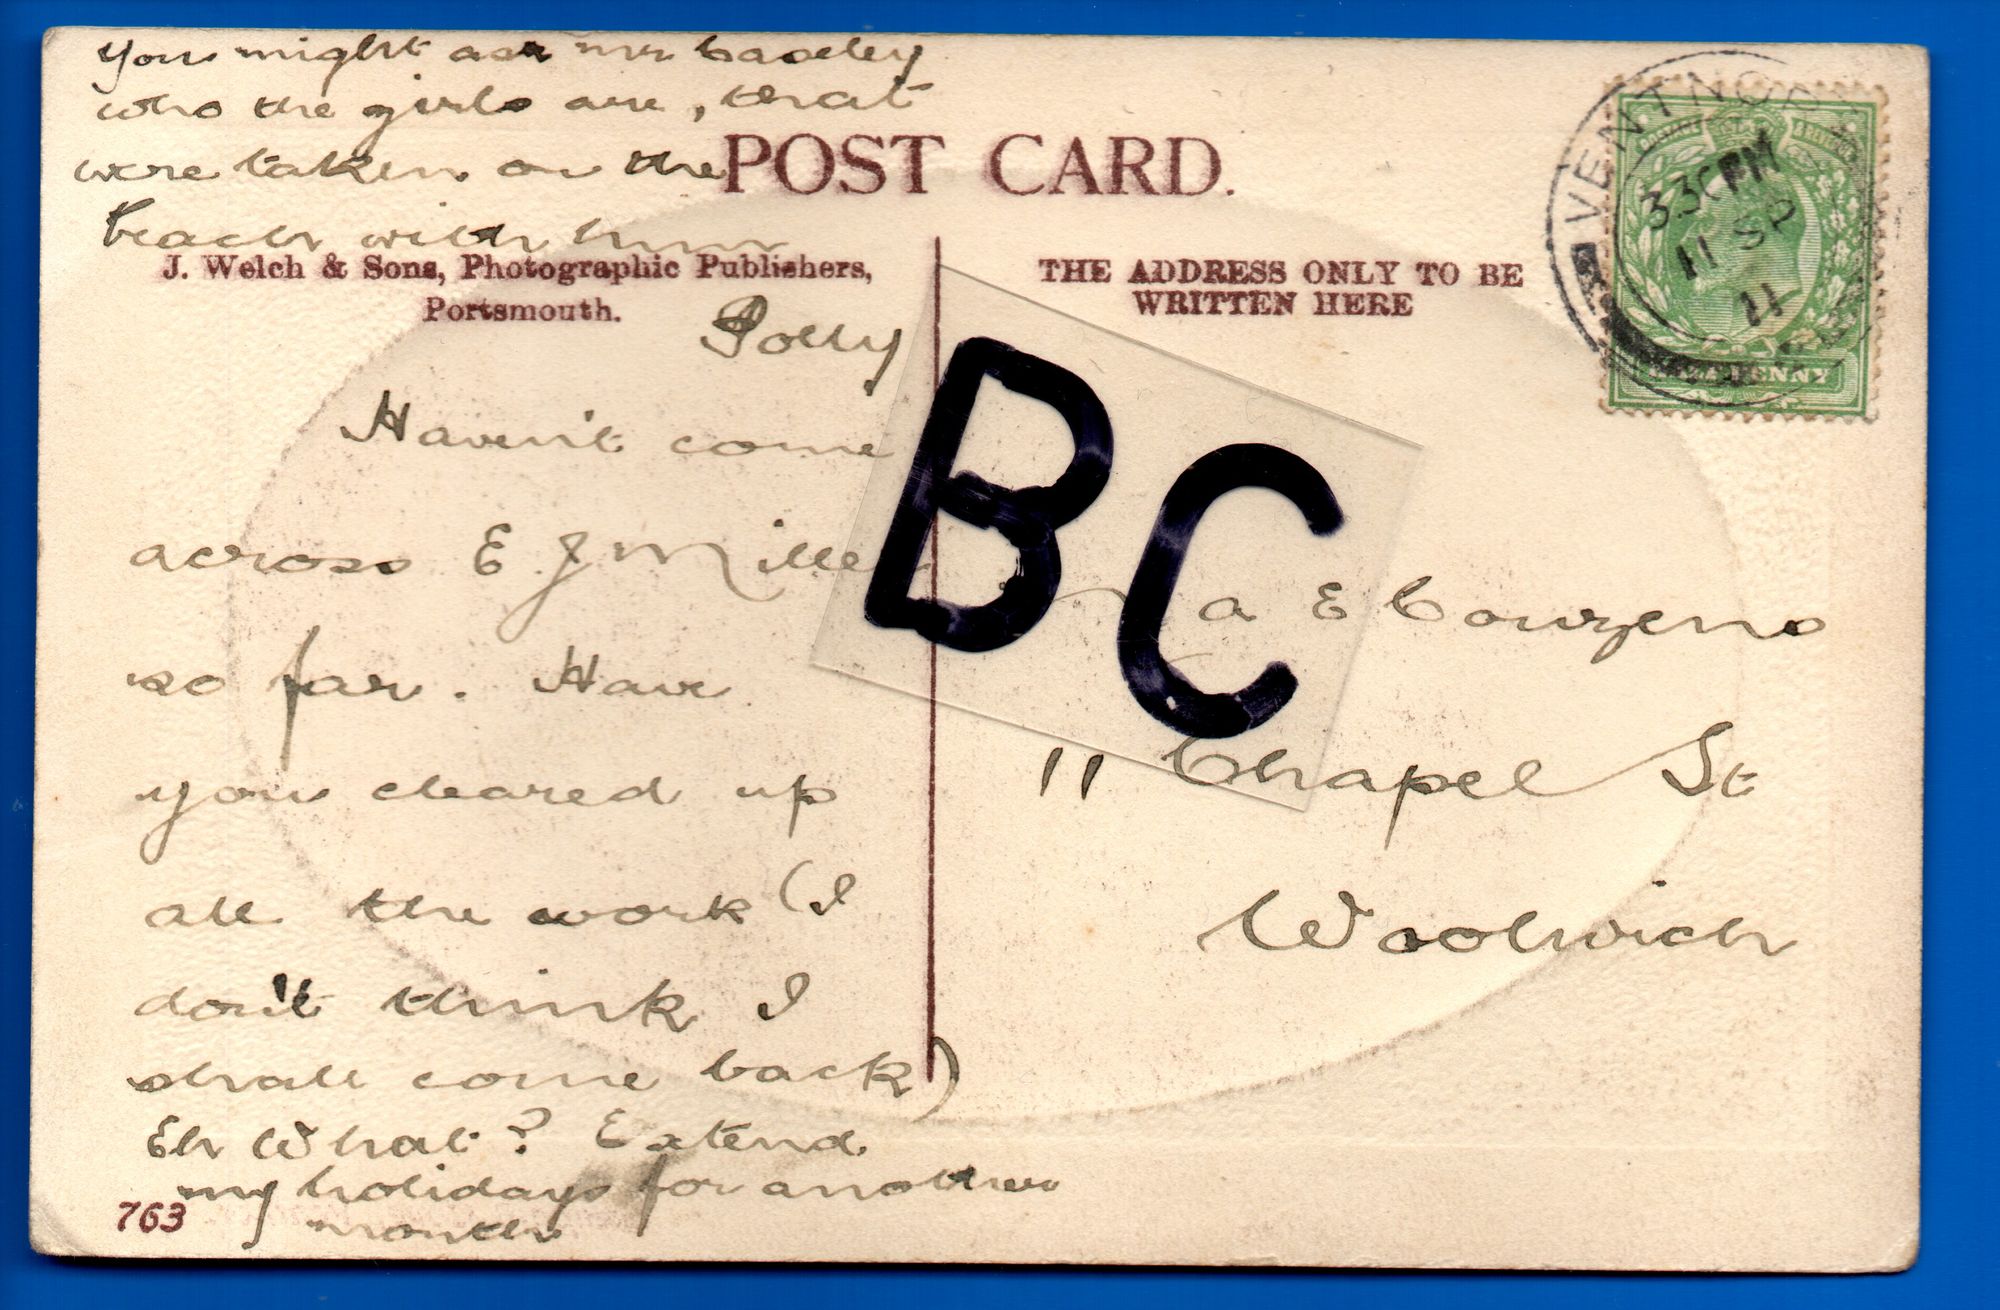 you might ask mr
who the girls are, that
were taken on the
beach with him
POST CARD.
J. Welch & Sons, Photographic Publishers,
Portsmouth.
THE ADDRESS ONLY TO BE
WRITTEN HERE
VENTNOR
3 30 PM
11 SP
11
HALFPENNY
Polly
Haven't come
across E J Miller
so far. Have
you cleared up
all the work (I
don't think I
shall come back)
Eh What? Extend
my holidays for another
month
763
BC
a E Couzens
11 Chapel St
Woolwich